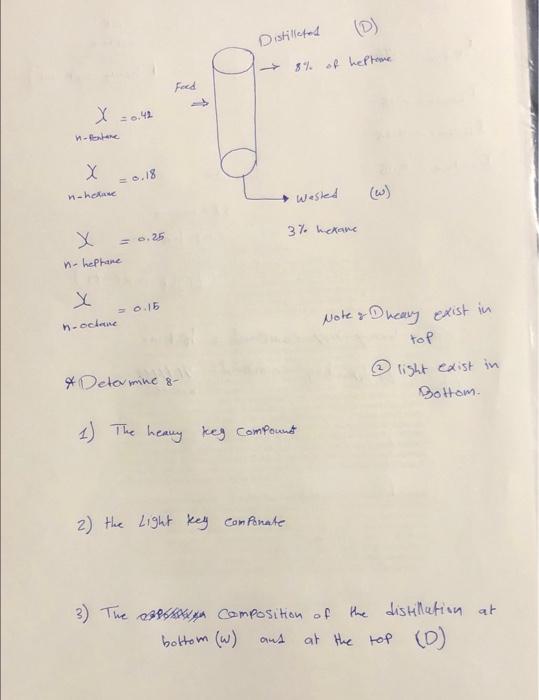 Distilleted (D)
→ 8% of heptane
Feed
X = 0.42
n-Pentane
X = 0.18
n-hexane
→ Wasted (w)
3% hexane
X = 0.25
n-heptane
X = 0.15
n-octane
Note : ① heavy exist in
top
② light exist in
Bottom.
* Determine :-
1) The heavy key Compound
2) the Light key Componate
3) The Composition of the distillation at
bottom (w) and at the top (D)